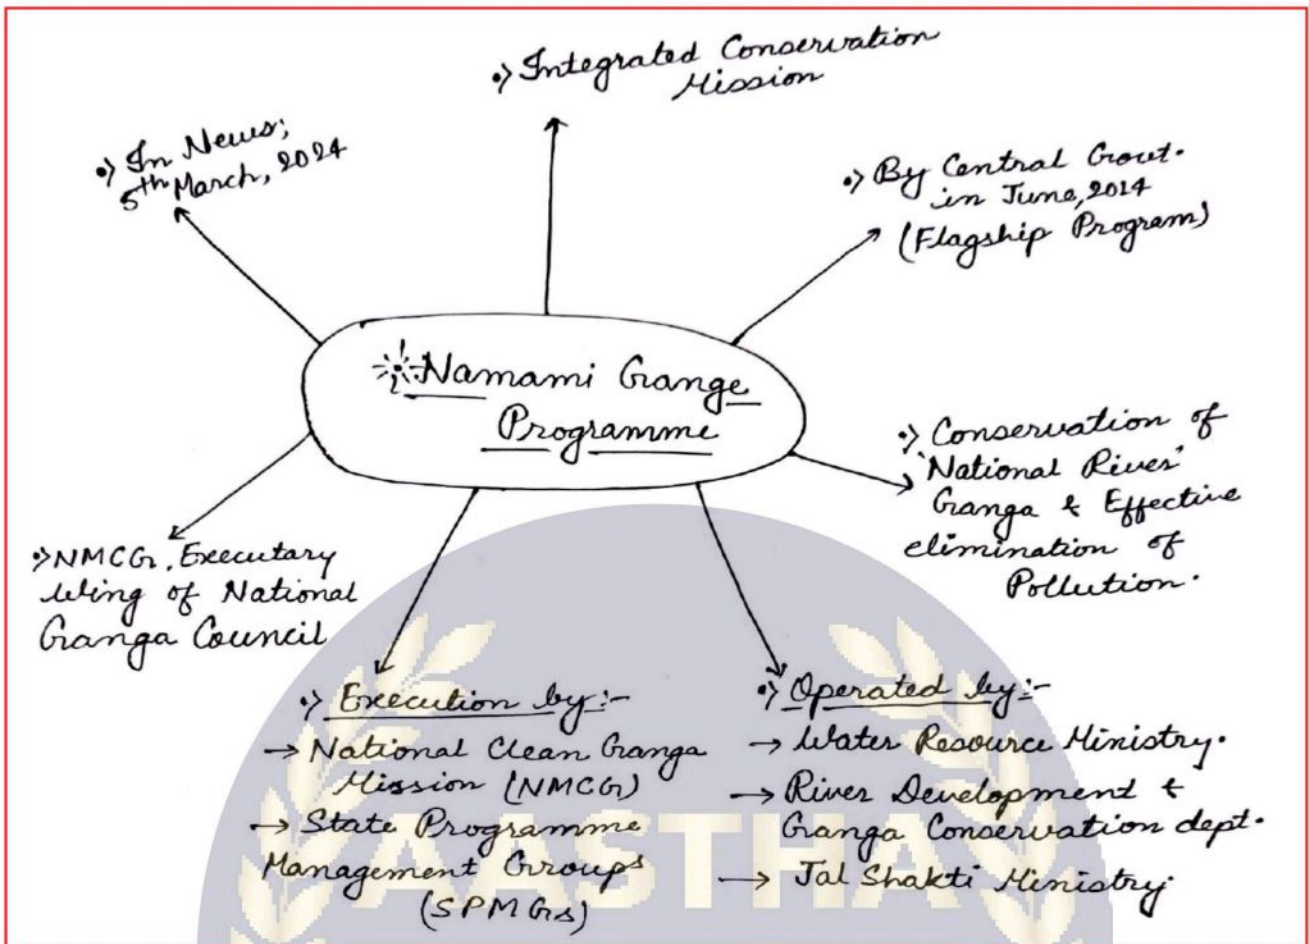 •> Integrated Conservation
Mission
•> In News;
5th March, 2024
•> By Central Govt.
in June, 2014
(Flagship Program)
Namami Gange
Programme
•> Conservation of
'National River'
Ganga & Effective
elimination of
Pollution.
•> NMCG, Executary
Wing of National
Ganga Council
•> Execution by:-
→ National Clean Ganga
Mission (NMCG)
→ State Programme
Management Groups
(SPMGs)
•> Operated by:-
→ Water Resource Ministry.
→ River Development &
Ganga Conservation dept.
→ Jal Shakti Ministry.
AASTHA